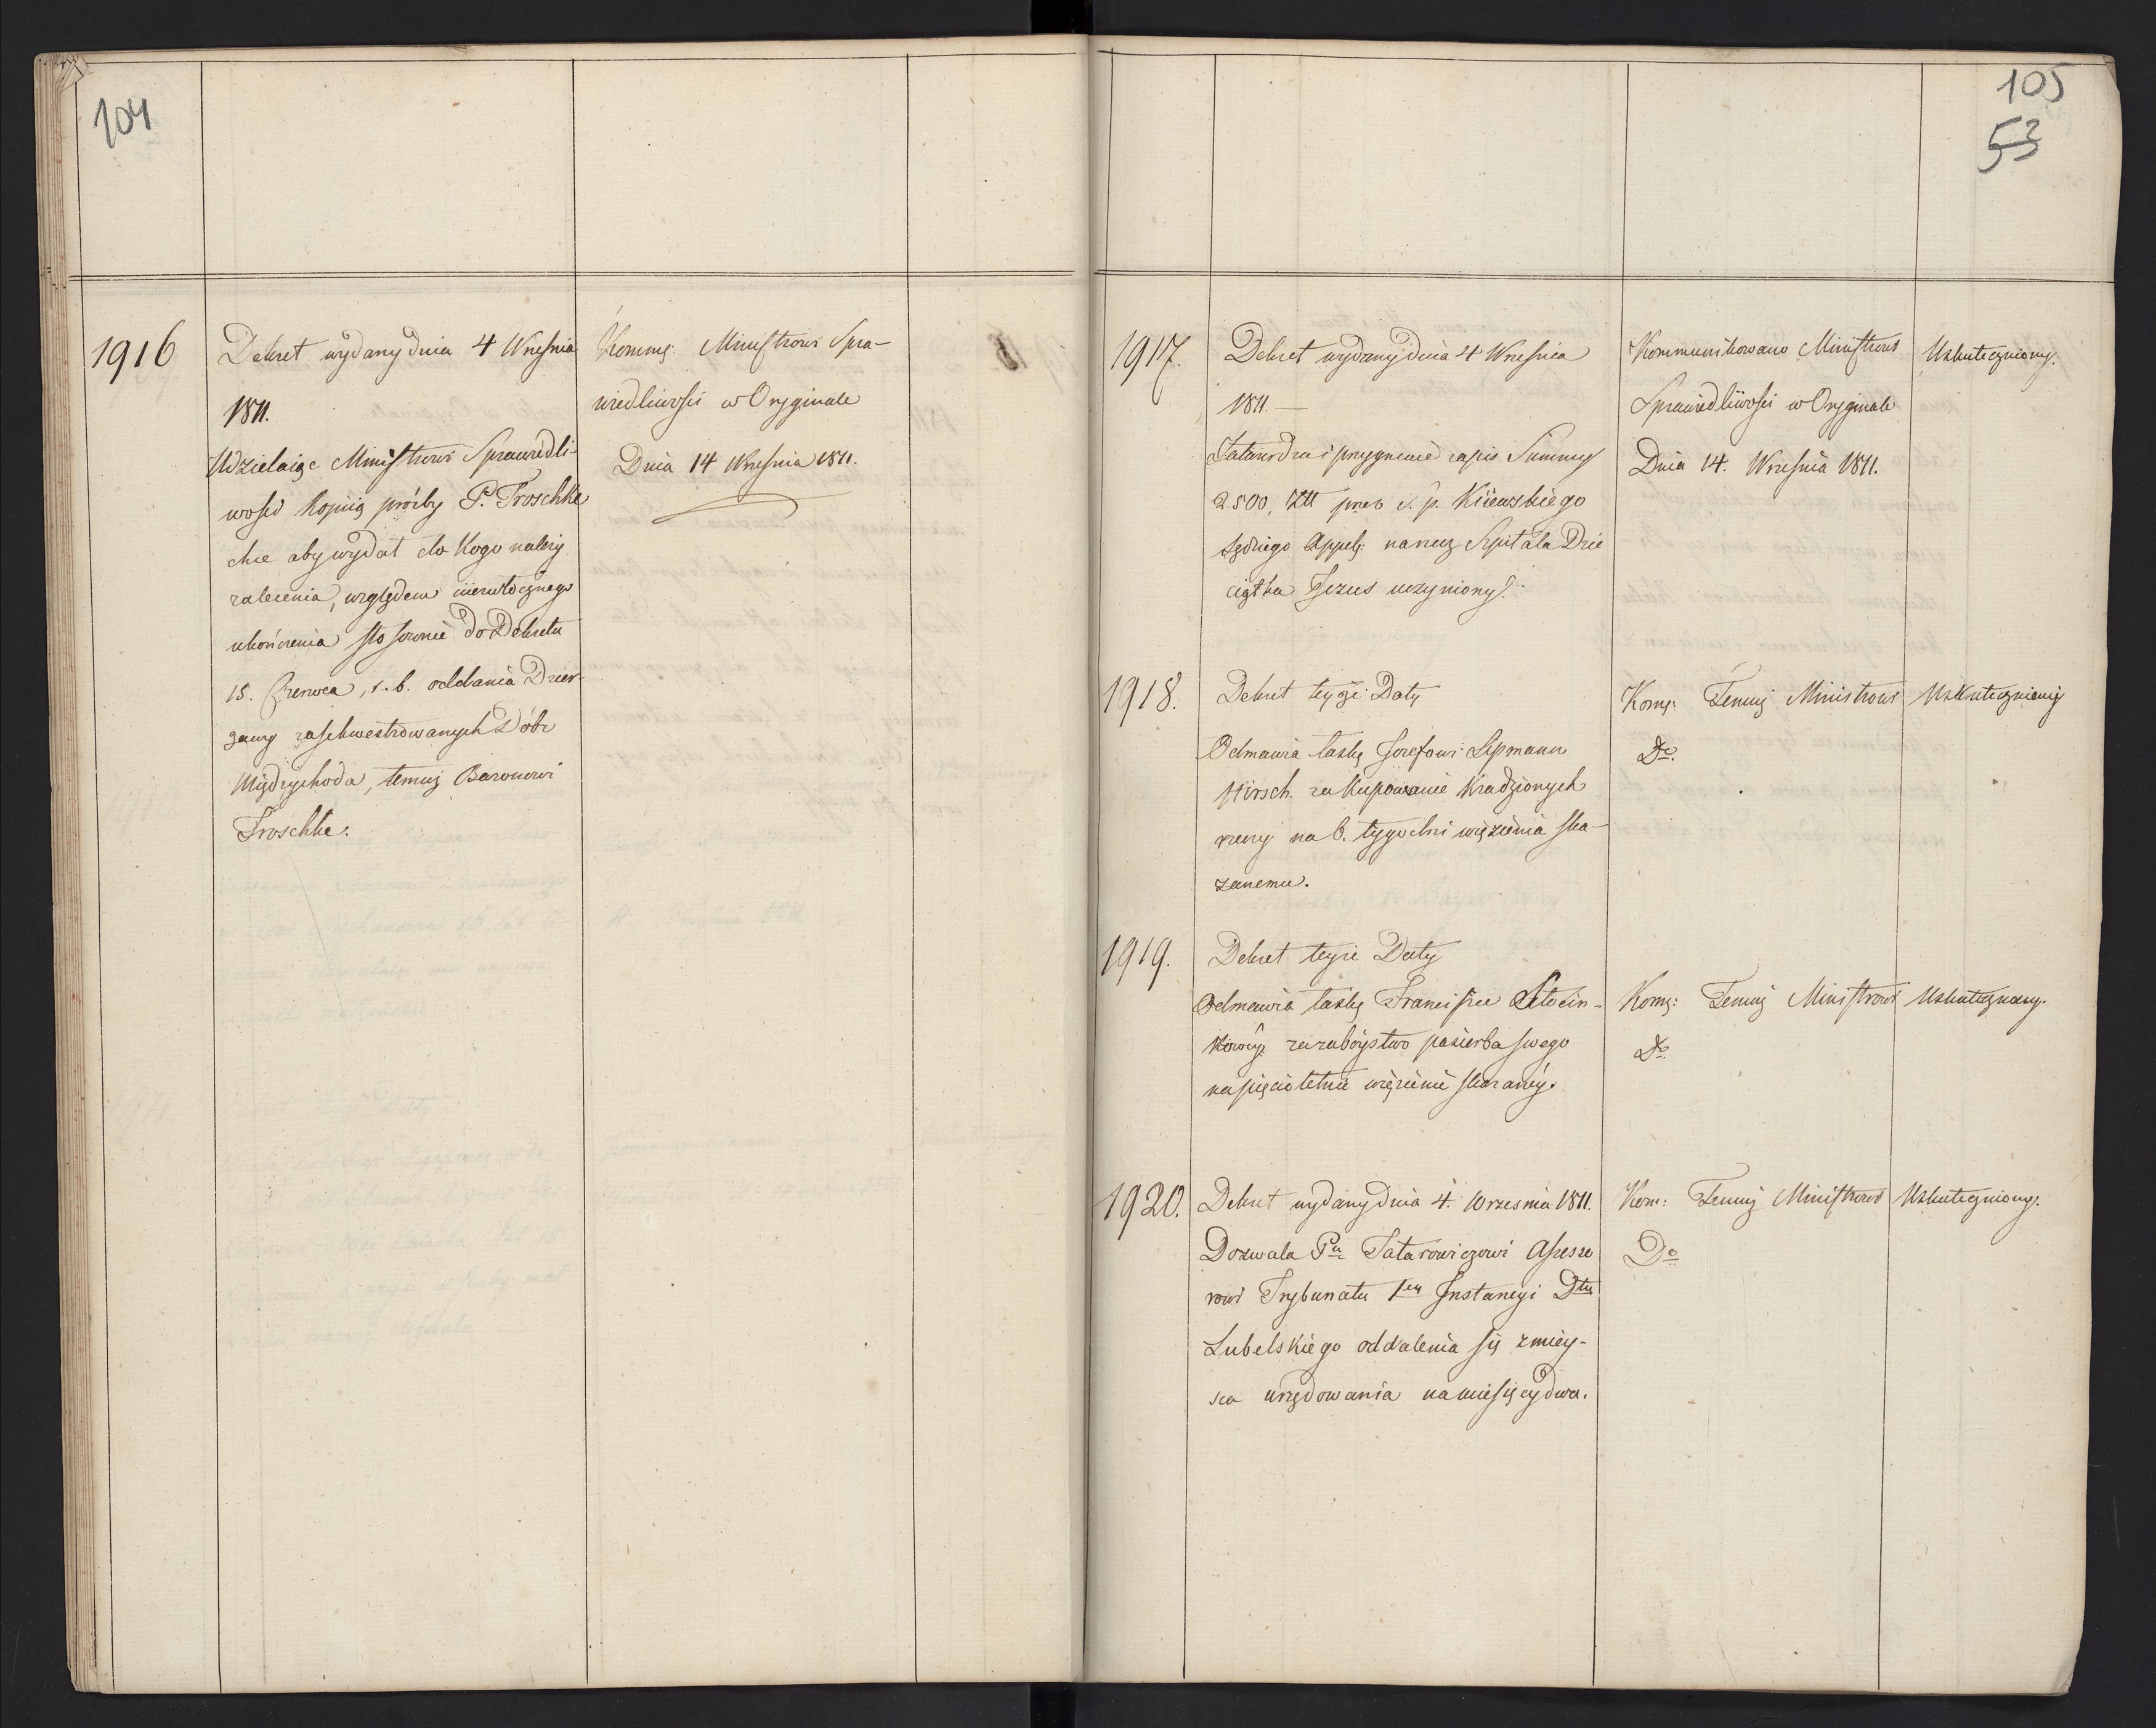 104
1916
Dekret wydany dnia 4 Września
1811.
Udzielaiąc Ministrowi Sprawiedli-
wości kopiią prózby P. Troschke
chce aby wydał do kogo należy
zalecenia, względem niezwłocznego
ukończenia stosownie do Dekretu
15. Czerwca, r. b. oddania Dzier-
zawy zasekwestrowanych Dóbr
Międzychoda, temuż Baronowi
Troschke.
Kommę: Ministrowi Spra-
wiedliwości w Oryginale
Dnia 14 Września 1811.
105
53
1917.
Dekret wydany dnia 4 Września
1811 —
Zatwierdza i przyjmuie zapis Summy
2500, Złł przez ś. p. Kiiewskiego
Sędziego Appelę: na rzecz Szpitala Dzie
ciątka Jezus uczyniony.
Kommunikowano Ministrowi
Sprawiedliwości w Oryginale
Dnia 14. Września 1811.
Uskuteczniony.
1918.
Dekret teyże Daty
Odmawia łaskę Jozefowi Lipmann
Hirsch. za kupowanie kradzionych
rzeczy na 6. tygodni więzienia ska-
zanemu.
Komę: Temuż Ministrowi
Do.
Uskuteczniony
1919.
Dekret teyże Daty
Odmawia łaskę Franciszce
za zaboystwo pasierba swego
na pięcioletnie więzienie skazaney.
Komę: Temuż Ministrowi
Do.
Uskuteczniony.
1920.
Dekret wydany dnia 4. Września 1811.
Dozwala Pu Tatarowiczowi Assesso
rowi Trybunału 1ey Instancyi Dtu
Lubelskiego oddalenia się z miey-
sca urzędowania na miesięcy dwa.
Kom: Temuż Ministrowi
Do
Uskuteczniony.